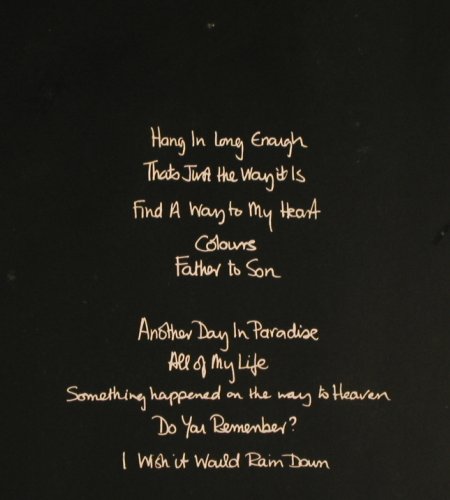 Hang In Long Enough
Thats Just the Way it Is
Find A Way to My Heart
Colours
Father to Son
Another Day In Paradise
All of My Life
Something happened on the way to Heaven
Do You Remember?
I Wish it Would Rain Down